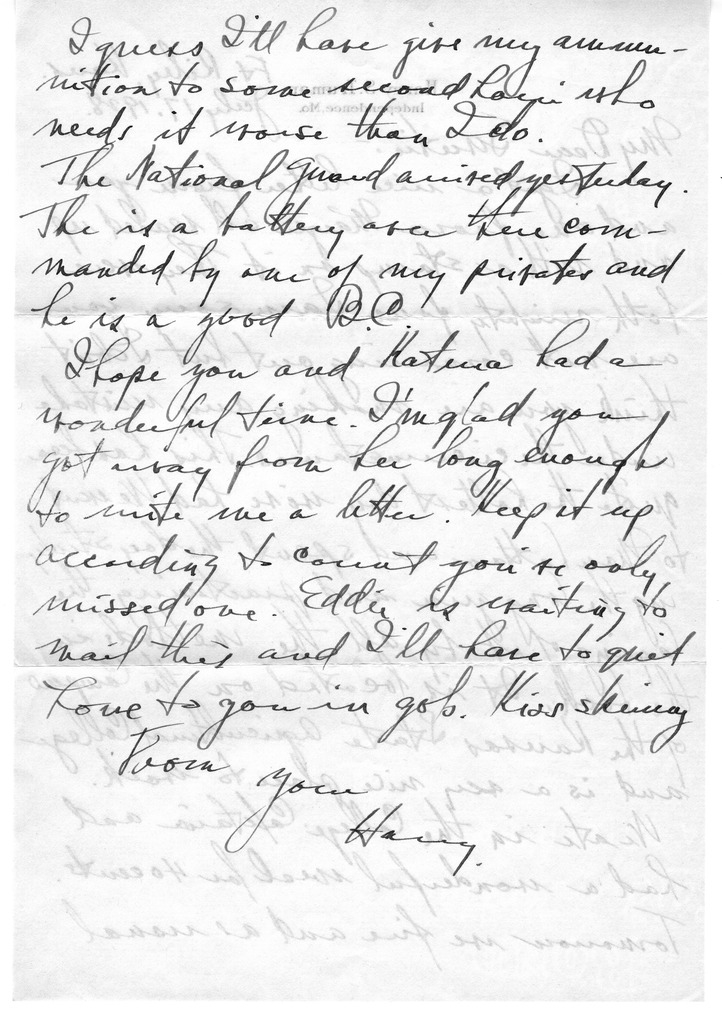 I guess I'll have give my ammu-
nition to some second Louie who
needs it worse than I do.
The National Guard arrived yesterday.
The is a battery over there com-
manded by one of my privates and
he is a good B.C.
I hope you and Natena had a
wonderful time. I'm glad you
got away from her long enough
to write me a letter. Keep it up
according to count you've only
missed one. Eddie is waiting to
mail this and I'll have to quit
Love to you in gobs. Kiss skinny
From your
Harry.